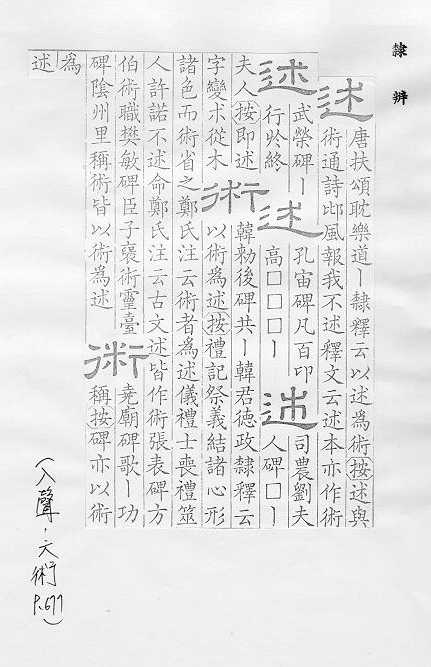 隸辨
述
唐扶頌耽樂道丨隸釋云以述為術按述與
術通詩邶風報我不述釋文云述本亦作術
述
武榮碑丨
行於終
述
孔宙碑凡百卬
高□□□丨
述
司農劉夫
人碑□丨
夫人按即述
字變朮從木
術
韓勑後碑共丨韓君德政隸釋云
以術為述按禮記祭義結諸心形
諸色而術省之鄭氏注云術者為述儀禮士喪禮筮
人許諾不述命鄭氏注云古文述皆作術張表碑方
伯術職樊敏碑臣子襃術靈臺
碑陰州里稱術皆以術為述
術
堯廟碑歌丨功
稱按碑亦以術
為
述
(入聲.六術 P.677)